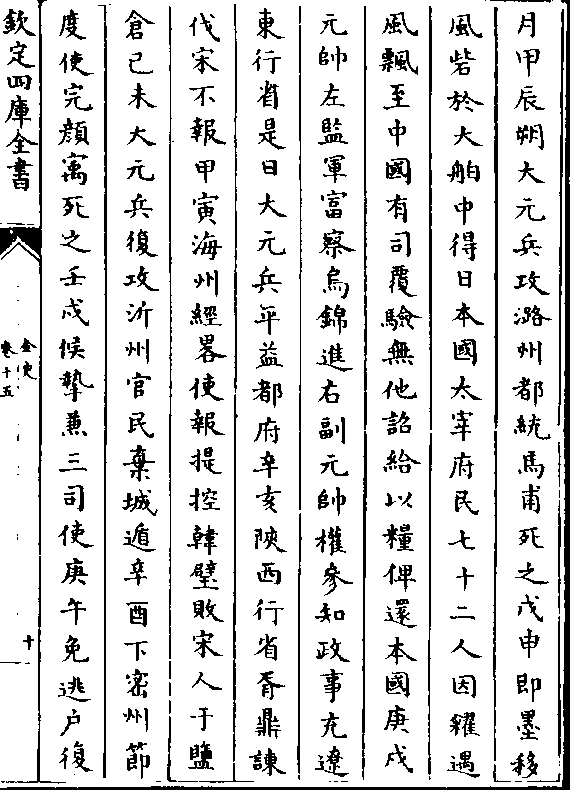 月甲辰朔大元兵攻潞州都統馬甫死之戊申即墨移
風砦於大舶中得日本國太宰府民七十二人因糴遇
風飄至中國有司覆驗無他詔給以糧俾還本國庚戌
元帥左監軍富察烏錦進右副元帥權參知政事充遼
東行省是日大元兵平益都府辛亥陝西行省胥鼎諫
伐宋不報甲寅海州經畧使報提控韓璧敗宋人于鹽
倉己未大元兵復攻沂州官民棄城遁辛酉下密州節
度使完顏寓死之壬戌侯摯兼三司使庚午免逃户復
欽定四庫全書
金史
卷十五
十